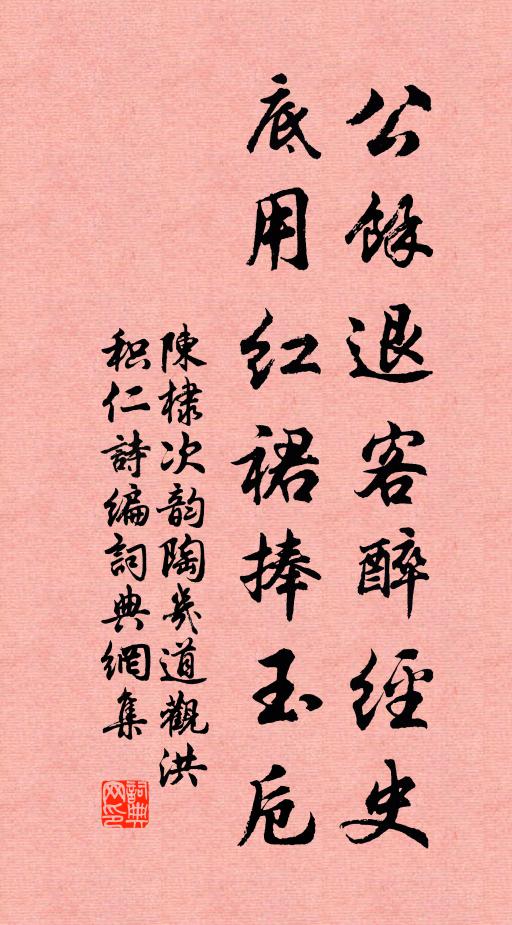 公餘退客醉經史
底用紅裙捧玉卮
陳棣次韵陶幾道觀洪
積仁詩編詞典網集
詞典
网印